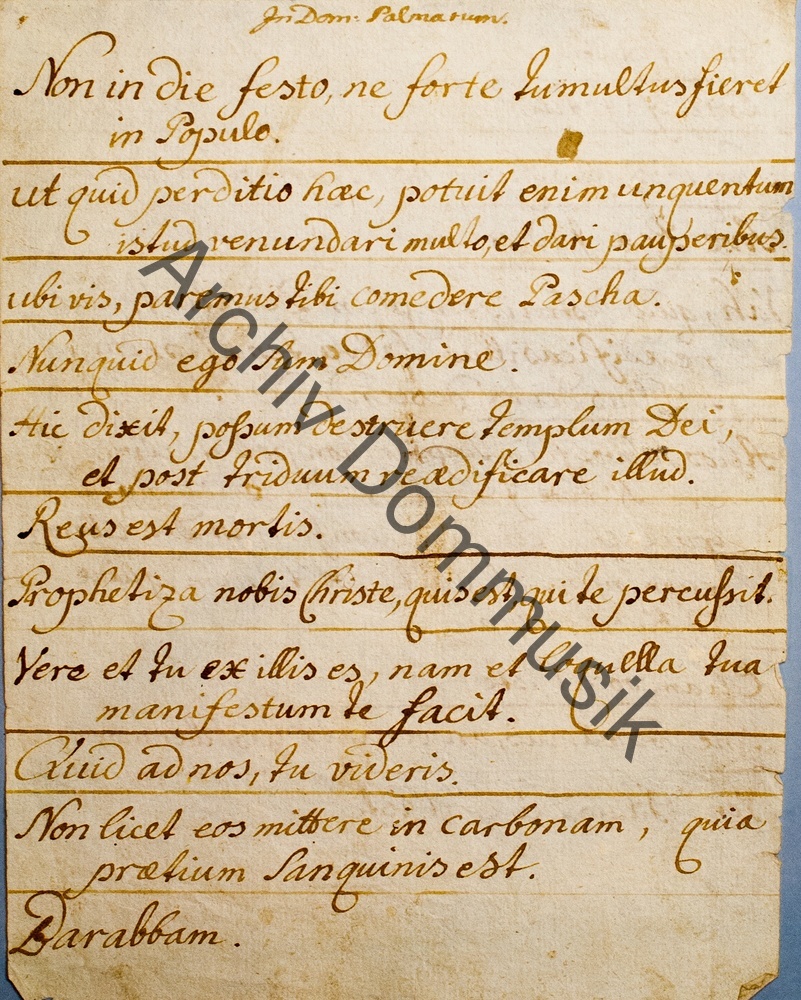 In Dom: Palmarum.
Non in die festo, ne forte tumultus fieret
in Populo.
ut quid perditio hæc, potuit enim unquentum
istud venundari multo, et dari pauperibus.
ubi vis, paremus tibi comedere Pascha.
Nunquid ego Sum Domine.
Hic dixit, possum destruere templum Dei,
et post triduum reædificare illud.
Reus est mortis.
Prophetiza nobis Christe, quis est, qui te percussit.
Vere et tu ex illis es, nam et loquella tua
manifestum te facit.
Quid ad nos, tu videris.
Non licet eos mittere in Carbonam, quia
prætium Sanquinis est.
Barabbam.
Archiv Dommusik